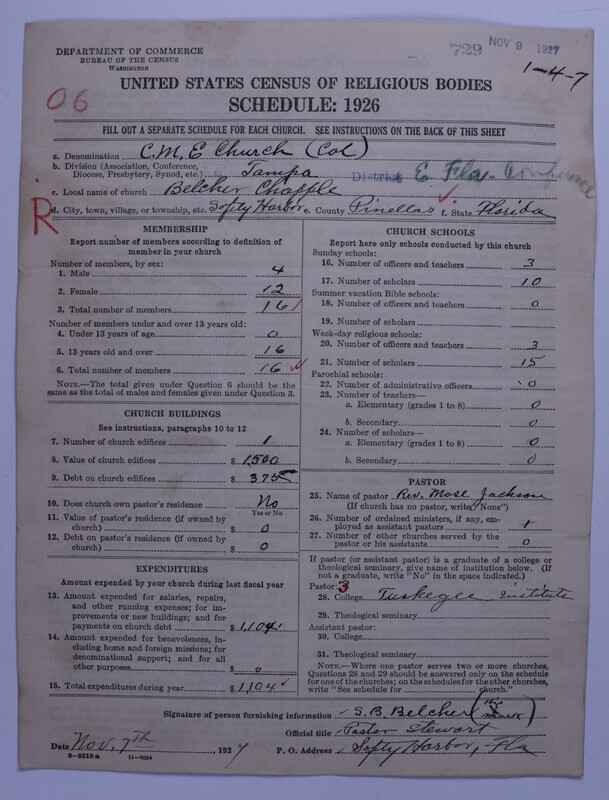 DEPARTMENT OF COMMERCE
BUREAU OF THE CENSUS
WASHINGTON
729 NOV 9 1927
1-4-7
UNITED STATES CENSUS OF RELIGIOUS BODIES
SCHEDULE: 1926
06
FILL OUT A SEPARATE SCHEDULE FOR EACH CHURCH. SEE INSTRUCTIONS ON THE BACK OF THIS SHEET
a. Denomination C.M.E Church (Col)
b. Division (Association, Conference, Diocese, Presbytery, Synod, etc.) Tampa District E. Fla-Conference
c. Local name of church Belcher Chapple
R
d. City, town, village, or township, etc. Softy Harbor e. County Pinellas f. State Florida
MEMBERSHIP
Report number of members according to definition of
member in your church
Number of members, by sex:
1. Male 4
2. Female 12
3. Total number of members 16
Number of members under and over 13 years old:
4. Under 13 years of age 0
5. 13 years old and over 16
6. Total number of members 16
NOTE.—The total given under Question 6 should be
the same as the total of males and females given under Question 3.
CHURCH BUILDINGS
See instructions, paragraphs 10 to 12
7. Number of church edifices 1
8. Value of church edifices $ 1,500
9. Debt on church edifices $ 375
10. Does church own pastor's residence? No
Yes or No
11. Value of pastor's residence (if owned by
church) $ 0
12. Debt on pastor's residence (if owned by
church) $ 0
EXPENDITURES
Amount expended by your church during last fiscal year
13. Amount expended for salaries, repairs,
and other running expenses; for im-
provements or new buildings; and for
payments on church debt $ 1,104
14. Amount expended for benevolences, in-
cluding home and foreign missions; for
denominational support; and for all
other purposes $ 0
15. Total expenditures during year $ 1,104
CHURCH SCHOOLS
Report here only schools conducted by this church
Sunday schools:
16. Number of officers and teachers 3
17. Number of scholars 10
Summer vacation Bible schools:
18. Number of officers and teachers 0
19. Number of scholars
Week-day religious schools:
20. Number of officers and teachers 3
21. Number of scholars 15
Parochial schools:
22. Number of administrative officers 0
23. Number of teachers—
a. Elementary (grades 1 to 8) 0
b. Secondary 0
24. Number of scholars—
a. Elementary (grades 1 to 8) 0
b. Secondary 0
PASTOR
25. Name of pastor Rev. Mose Jackson
(If church has no pastor, write "None")
26. Number of ordained ministers, if any, em-
ployed as assistant pastors
27. Number of other churches served by the
pastor or his assistants 0
If pastor (or assistant pastor) is a graduate of a college or
theological seminary, give name of institution below. (If
not a graduate, write "No" in the space indicated.)
Pastor: 3
28. College Tuskegee Institute
29. Theological seminary
Assistant pastor:
30. College
31. Theological seminary
NOTE.—Where one pastor serves two or more churches,
Questions 28 and 29 should be answered only on the schedule
for one of the churches; on the schedules for the other churches,
write "See schedule for church."
Signature of person furnishing information S. B. Belcher (his X mark)
Official title Pastor Stewort
Date Nov, 7th, 1927 P. O. Address Softy Harbor, Fla
8-5518a 11-9024